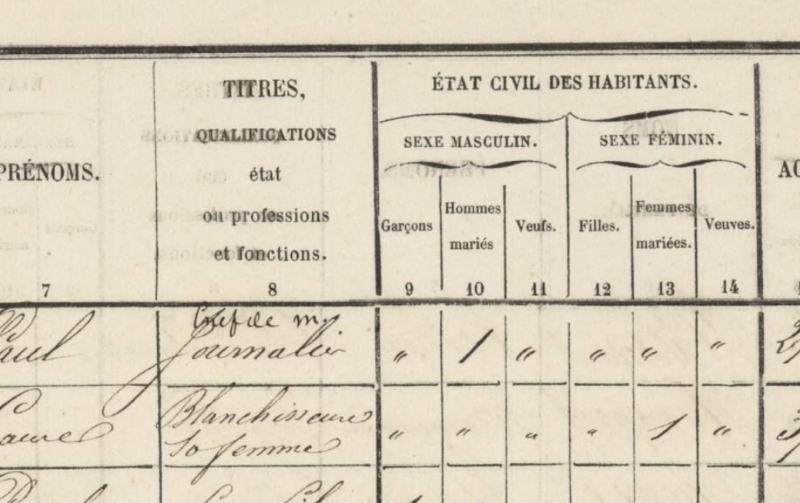 TITRES,
QUALIFICATIONS
état
ou professions
et fonctions.
PRÉNOMS.
ÉTAT CIVIL DES HABITANTS.
SEXE MASCULIN. SEXE FÉMININ.
Garçons Hommes mariés Veufs. Filles. Femmes mariées. Veuves.
7 8 9 10 11 12 13 14
Chef de m.
Paul Journalier " 1 " " " "
Laure Blanchisseuse " " " " 1 "
Sa femme